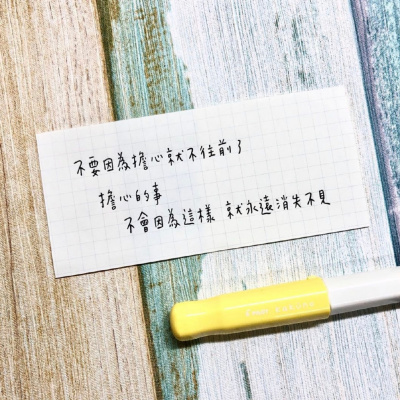 不要因為擔心就不往前了
擔心的事
不會因為這樣 就永遠消失不見